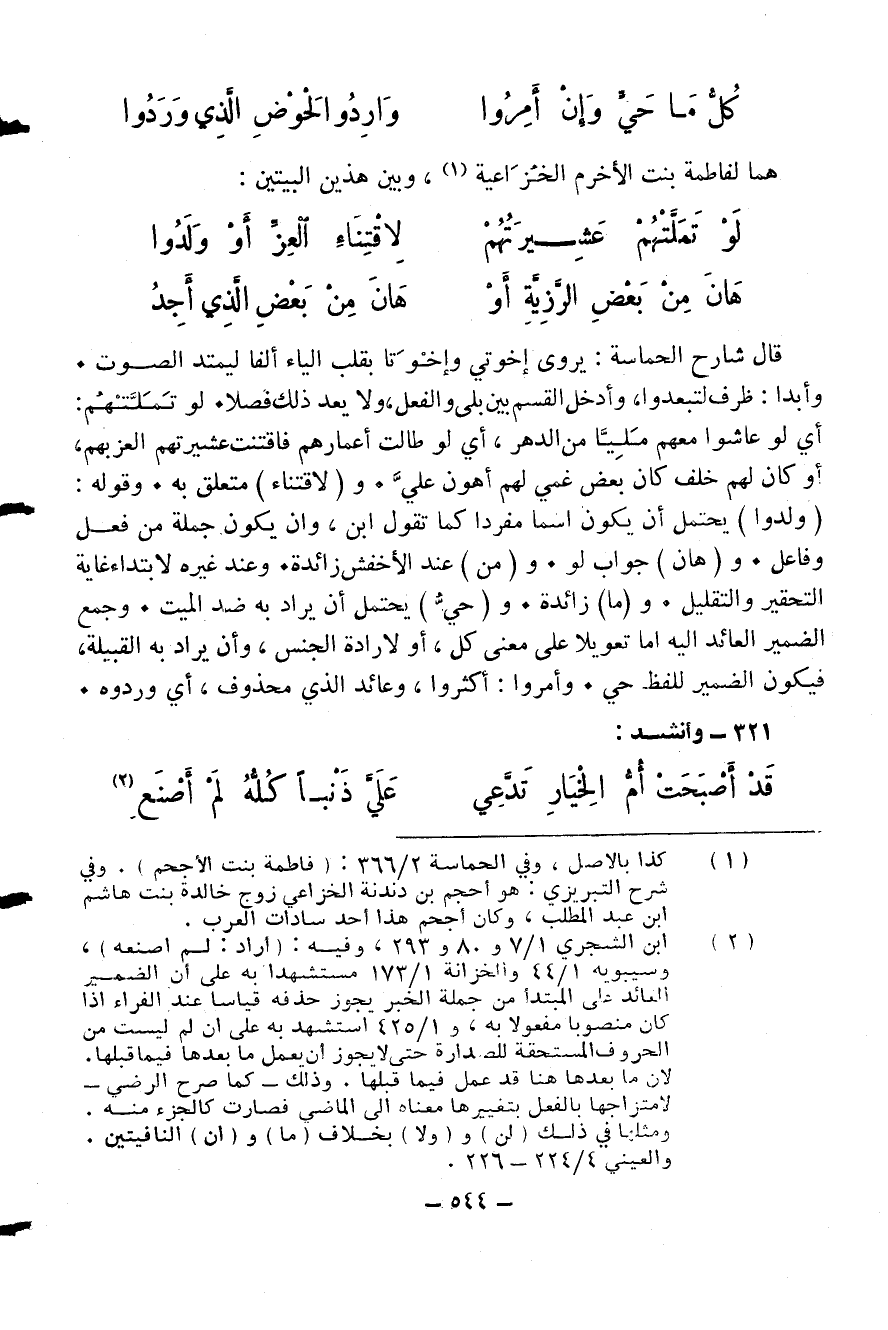 كُلُّ مَا حَيٍّ وَإِنْ أَمِرُوا وَارِدُو الْحَوْضِ الَّذِي وَرَدُوا
هما لفاطمة بنت الأخرم الخُزَاعية (١) ، وبين هذين البيتين :
لَوْ تَمَلَّتْهُمْ عَشِيرَتُهُمْ لِاقْتِنَاءِ الْعِزِّ أَوْ وَلَدُوا
هَانَ مِنْ بَعْضِ الرَّزِيَّةِ أَوْ هَانَ مِنْ بَعْضِ الَّذِي أَجِدُ
قال شارح الحماسة : يروى إخوتي وإخْوَتا بقلب الياء ألفا ليمتد الصوت •
وأبدا : ظرف لتبعدوا، وأدخل القسم بين بلى والفعل، ولا يعد ذلك فصلا• لو تَمَلَّتْهُم:
أي لو عاشوا معهم مَلِيًّا من الدهر ، أي لو طالت أعمارهم فاقتنت عشيرتهم العز بهم،
أو كان لهم خلف كان بعض غمي لهم أهون عليَّ • و ( لاقتناء ) متعلق به • وقوله :
( ولدوا ) يحتمل أن يكون اسما مفردا كما تقول ابن ، وان يكون جملة من فعل
وفاعل • و ( هان ) جواب لو • و ( من ) عند الأخفش زائدة• وعند غيره لابتداء غاية
التحقير والتقليل • و (ما) زائدة • و ( حيُّ ) يحتمل أن يراد به ضد الميت • وجمع
الضمير العائد اليه اما تعويلا على معنى كل ، أو لارادة الجنس ، وأن يراد به القبيلة،
فيكون الضمير للفظ حي • وأمروا : أكثروا ، وعائد الذي محذوف ، أي وردوه •
٣٢١ – وأنشد :
قَدْ أَصْبَحَتْ أُمُّ الْخِيَارِ تَدَّعِي عَلَيَّ ذَنْباً كُلُّهُ لَمْ أَصْنَعِ (٢)
(١) كذا بالاصل ، وفي الحماسة ٣٦٦/٢ : ( فاطمة بنت الأجحم ) . وفي
شرح التبريزي : هو أحجم بن دندنة الخزاعي زوج خالدة بنت هاشم
ابن عبد المطلب ، وكان أجحم هذا أحد سادات العرب .
(٢) ابن الشجري ٧/١ و ٨٠ و ٢٩٣ ، وفيه : ( أراد : لم اصنعه ) ،
وسيبويه ٤٤/١ والخزانة ١٧٣/١ مستشهدا به على أن الضمير
العائد على المبتدأ من جملة الخبر يجوز حذفه قياسا عند الفراء اذا
كان منصوبا مفعولا به ، و ٤٢٥/١ استشهد به على ان لم ليست من
الحروف المستحقة للصدارة حتى لا يجوز أن يعمل ما بعدها فيما قبلها.
لان ما بعدها هنا قد عمل فيما قبلها . وذلك – كما صرح الرضي –
لامتزاجها بالفعل بتغييرها معناه الى الماضي فصارت كالجزء منه .
ومثلها في ذلك ( لن ) و ( ولا ) بخلاف ( ما ) و ( ان ) النافيتين .
والعيني ٢٢٤/٤ – ٢٢٦ .
– ٥٤٤ –